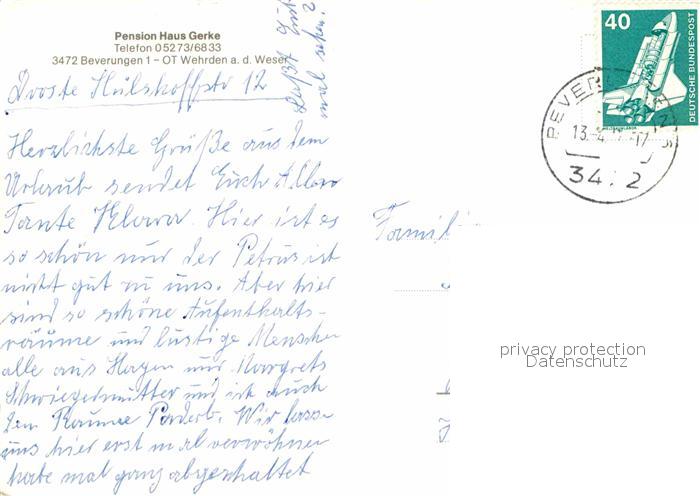 Pension Haus Gerke
Telefon 05273/6833
3472 Beverungen 1 – OT Wehrden a. d. Weser
Droste Hülshoffstr 12
Herzlichste Grüße aus dem
Urlaub sendet Euch Allen
Tante Klara. Hier ist es
so schön nur der Petrus ist
nicht gut zu uns. Aber hier
sind so schöne Aufenthalts-
räume und lustige Menschen
alle aus Hagen nur Margrets
Schwiegermutter und ich auch
dem Raume Paderb. Wir lassen
uns hier erst mal verwöhnen
habe mal ganz abgeschaltet
mal sehen?
Famil
40
DEUTSCHE BUNDESPOST
BEVER
13.-4
-17
34 2
privacy protection
Datenschutz